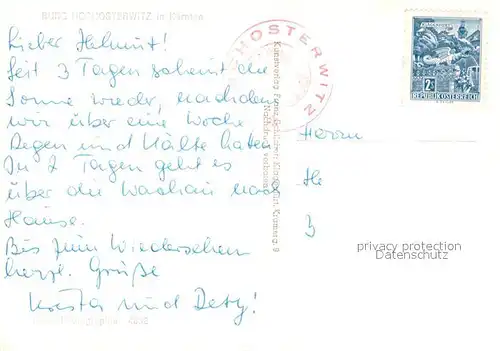 BURG HOCHOSTERWITZ in Kärnten
Lieber Helmut!
Seit 3 Tagen scheint die
Sonne wieder, nachdem
wir über eine Woche
Regen und Kälte hatten.
In 2 Tagen geht es
über die Wachau nach
Hause.
Bis zum Wiedersehen
herzl. Grüße
und
HOSTERWITZ
Kunstverlag Franz Schilcher, Klagenfurt,
Nachdruck verboten
2S
REPUBLIK ÖSTERREICH
Herrn
He
3
privacy protection
Datenschutz